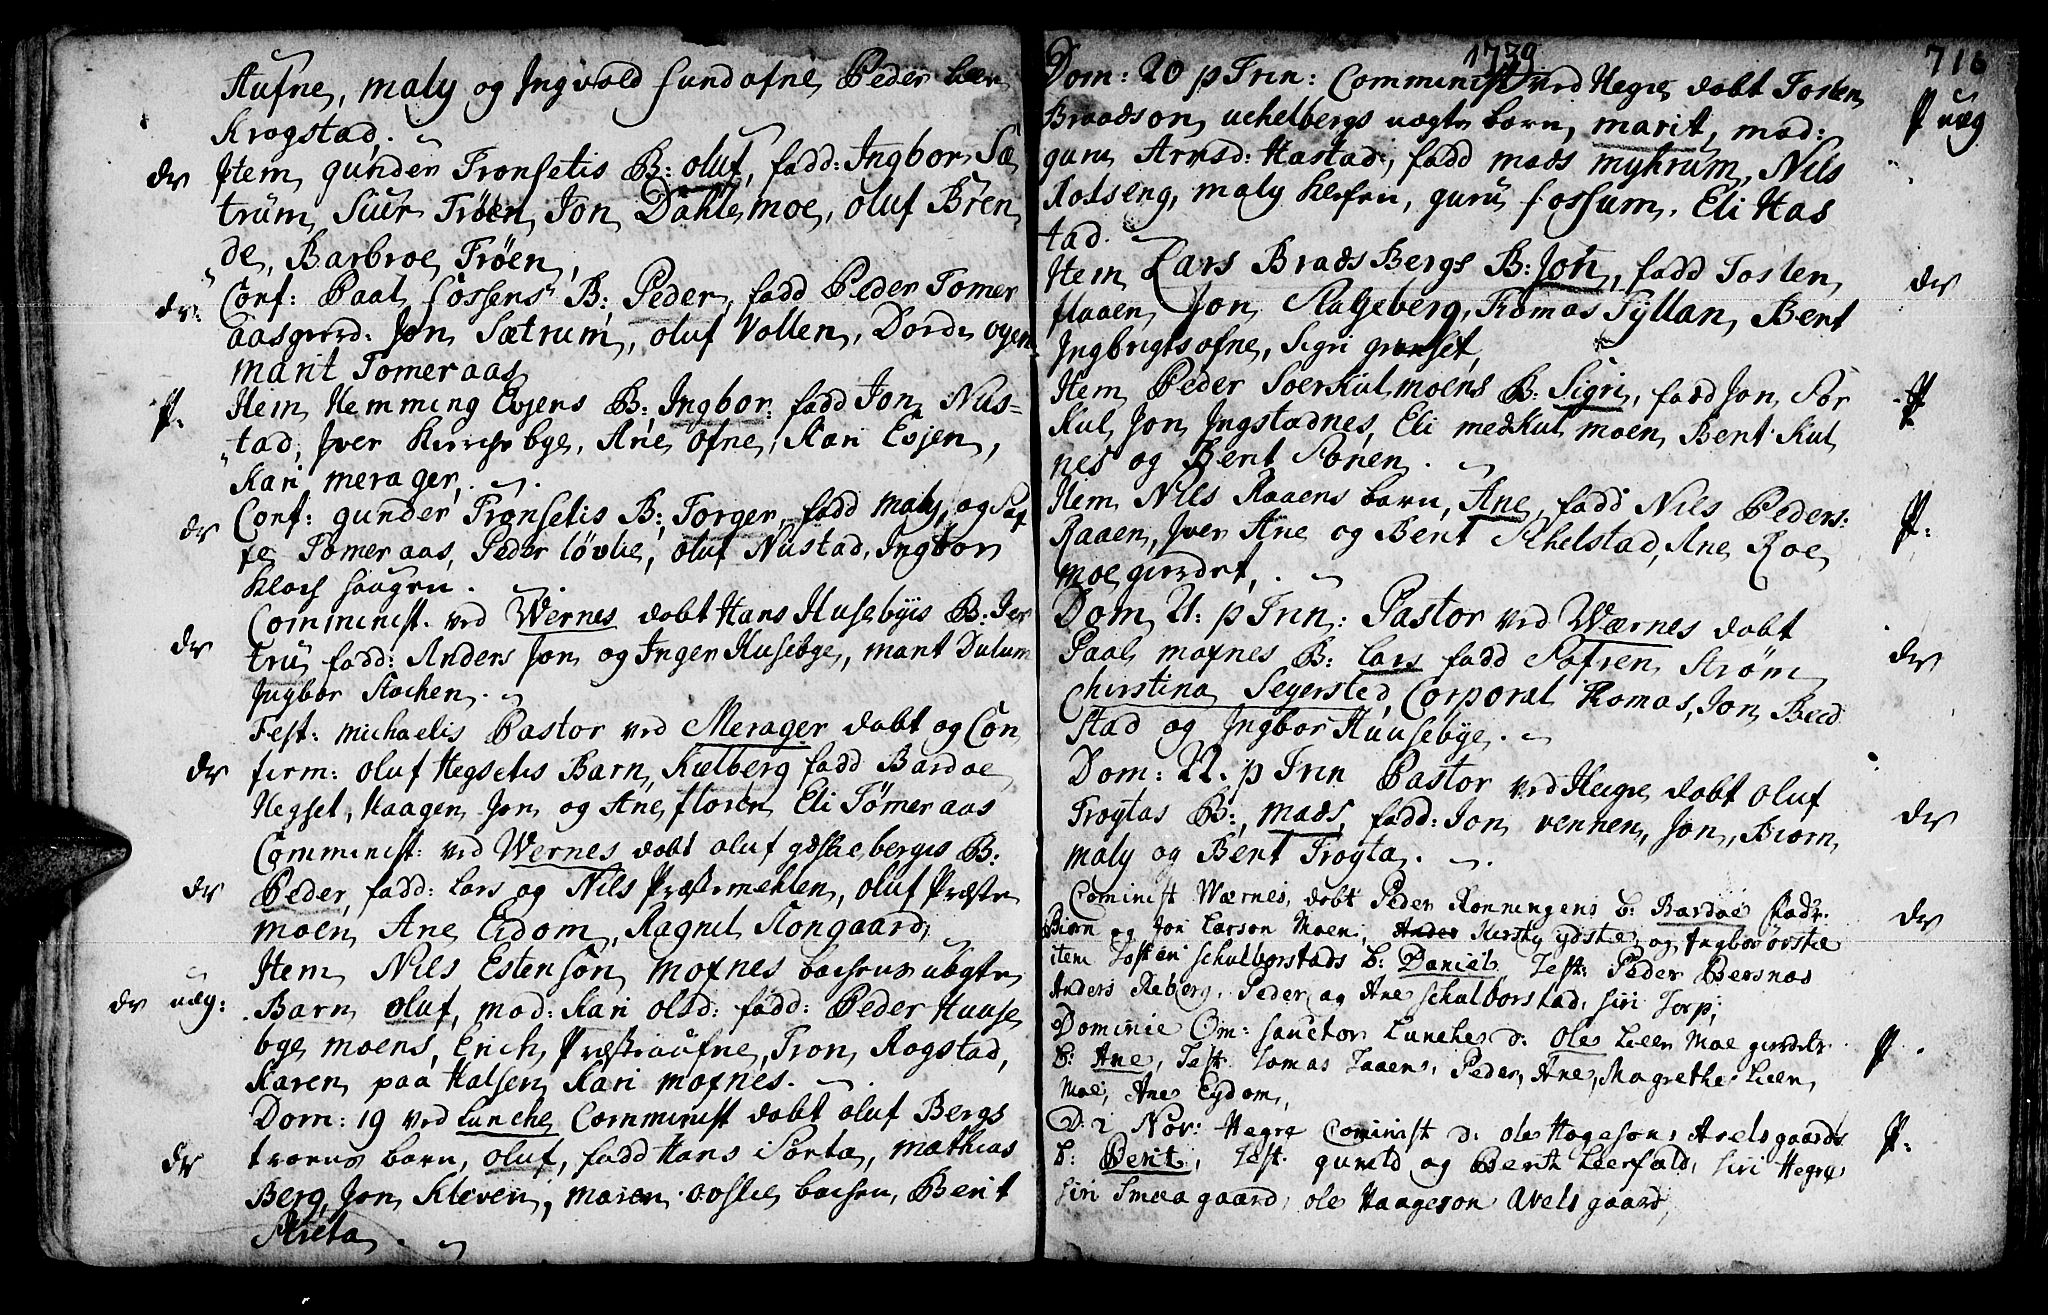 Aufne, maly og Ingvold sundofne Peder leer
Krogstad,
dr Item gunder Tronsetis B: oluf, fadd: Ingbor Sæ
trum, Siur Trøen, Jon Dahlemoe, oluf Bren
de, Barbroe Trøen,
dr: Conf: Paal fossens B: Peder, fadd Peder Tomer
aasgierd: Jon Sætrum, oluf Vollen, Dorde oyen
marit Tomeraas
P. Item Hemming Evjens B: Ingbor: fadd Jon Nus=
tad, Iver Kirchebye, Ane ofne, Kari Evjen,
Kari merager,
dr Conf: gunder Tronsetis B: Torger, fadd maly, og
Tomeraas, Peder løvlie, oluf Nustad, Ingbor
Kloch haugen.
Comminist. ved Wernes dobt Hans Husebyis B: Jer
dr tru fadd: Anders Jon og Inger Husebye, marit Dulum
Ingbor Stochen.
Fest: michaelis Pastor ved Merager dobt og Con
dr firm: oluf Hegsetis Barn, Kielberg fadd Bardoe
Hegset, Haagen, Jon og Ane floren Eli Tømeraas
Comminist: ved Wernes dobt oluf gdskebergis B:
dr Peder, fadd: Lars og Nils Præstemehlen, oluf Præste
moen, Ane Eidom, Ragnil Stongaard,
Item Nils Estenson mofnes bachens uægte
dr uæg: Barn oluf, mod: Kari olsd: fadd: Peder Huuse
bye moens, Erich Præstaufne, Tron Rogstad,
Karen paa Halsen Kari mofnes.
Dom: 19 ved Lunche Comminist dobt oluf Bergs
dr trøens barn, oluf, fadd Hans Sorta, mathias
Berg, Jon Kleven, maren bachen, Berit
Skreta.
1739 716
Dom: 20 p Trin: Comminist ved Hegre dobt Tosten
Braadson uchelbergs uægte barn, marit, mod: P uæg
guru Arnsd: Hastad, fadd mads myhrum, Nils
Rodseng, maly Hosen, guru fossum, Eli Has
tad.
Item Lars Brads Bergs B: Jon, fadd Tosten dr
flaaen, Jon Skalfeberg, Tomas Tyllan, Bert
Ingbrigtsofne, Sigri granset,
Item Peder Soerkulmoens B: Sigri, fadd Jon Sor P
Kul, Jon Ingstadnes, Eli medkulmoen, Bent Kul
nes og Berit Sonen.
Item Nils Raaens barn, Ane, fadd Nils Peders: P:
Raaen, Iver Ane og Bent Skelstad, Ane Roe
moegierdet,
Dom 21: p Trin: Pastor ved Wærnes dobt
Paal mofnes B: Lars fadd Sofren Strøm dr
Christina Segersted, Corporal Tomas, Jon Bred
stad og Ingbor Huusebye.
Dom: 22. p Trin Pastor ved Hegre dobt oluf
Trogtas B: mads, fadd: Jon vennen, Jon, Biorn, dr
maly og Berit Trogta.
Cominist Wærnes, dobt Peder Ronningens b: Bardoe fadr:
Biørn og Jon Larson Moen, Kirsty ydstie og Ingbor ørstie dr
item Tosten Schulborstads b: Daniel Test: Peder Bersnas
Anders Reberg, Peder og Ane Schulborstad, Siri Torp;
Dominie Om: sanctor Lunche d: Oles Leer Moe gierdetz P.
b: Ane, Test: Tomas Taaen, Peder, Ane, Magrethe Leen,
Moe, Ane Eydom,
D: 2 Nov: Hegre Cominist d: ole Hogesons Avelsgaards P:
b: Berit, Test: gunild og Berith Leerfald, Siri Hegre
Siri Smedgaard, ole Haageson Avelsgaard,